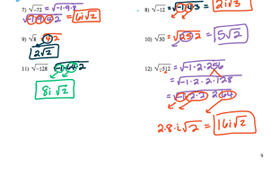 7) √-72 = √-1·9·8
√-1·9·4·2 = 6i√2
8) √-12 = √-1·4·3 = 2i√3
9) √8 = √4·2
2√2
10) √50 = √25·2 = 5√2
11) √-128 = √-1·64·2
8i√2
12) √-512 = √-1·2·256
= √-1·2·2·128
= √-1·2·2·2·64
2·8·i√2 = 16i√2